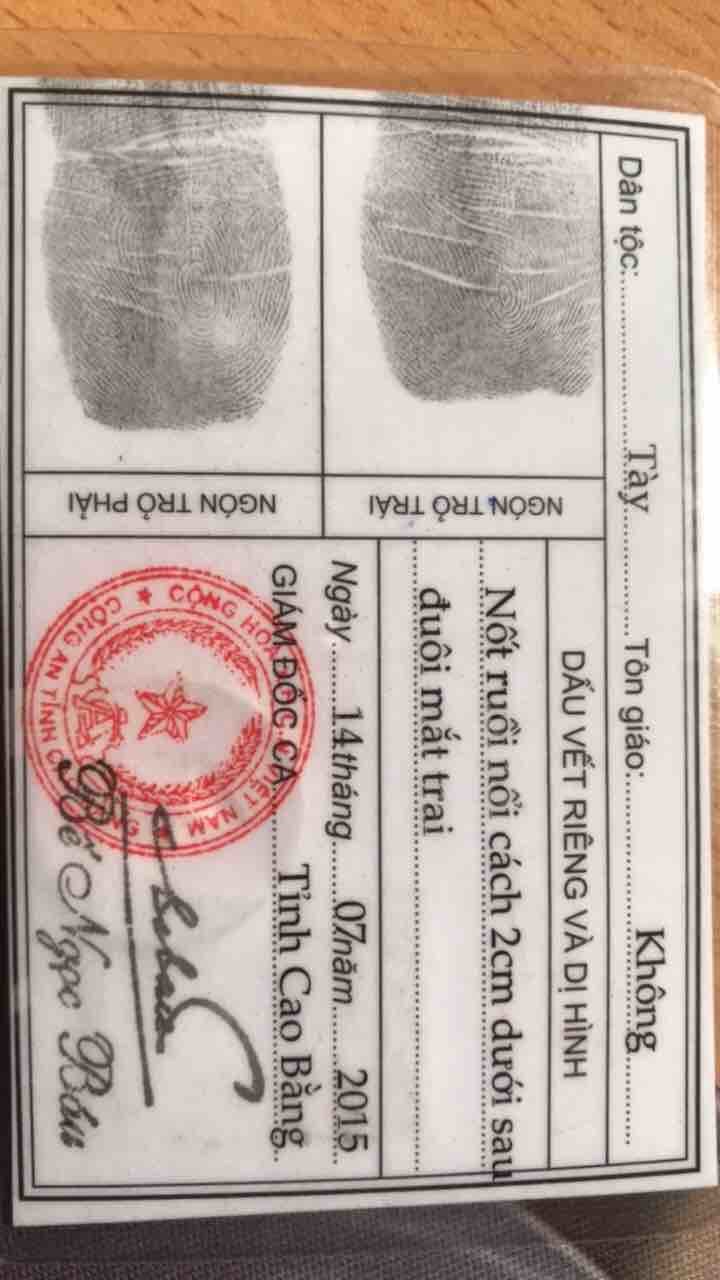 Dân tộc: Tày Tôn giáo: Không
NGÓN TRỎ TRÁI
NGÓN TRỎ PHẢI
DẤU VẾT RIÊNG VÀ DỊ HÌNH
Nốt ruồi nổi cách 2cm dưới sau
đuôi mắt trai
Ngày 14 tháng 07 năm 2015
GIÁM ĐỐC CA Tỉnh Cao Bằng
CỘNG HO VIỆT NAM
CÔNG AN TỈNH C
Bế Ngọc Báu